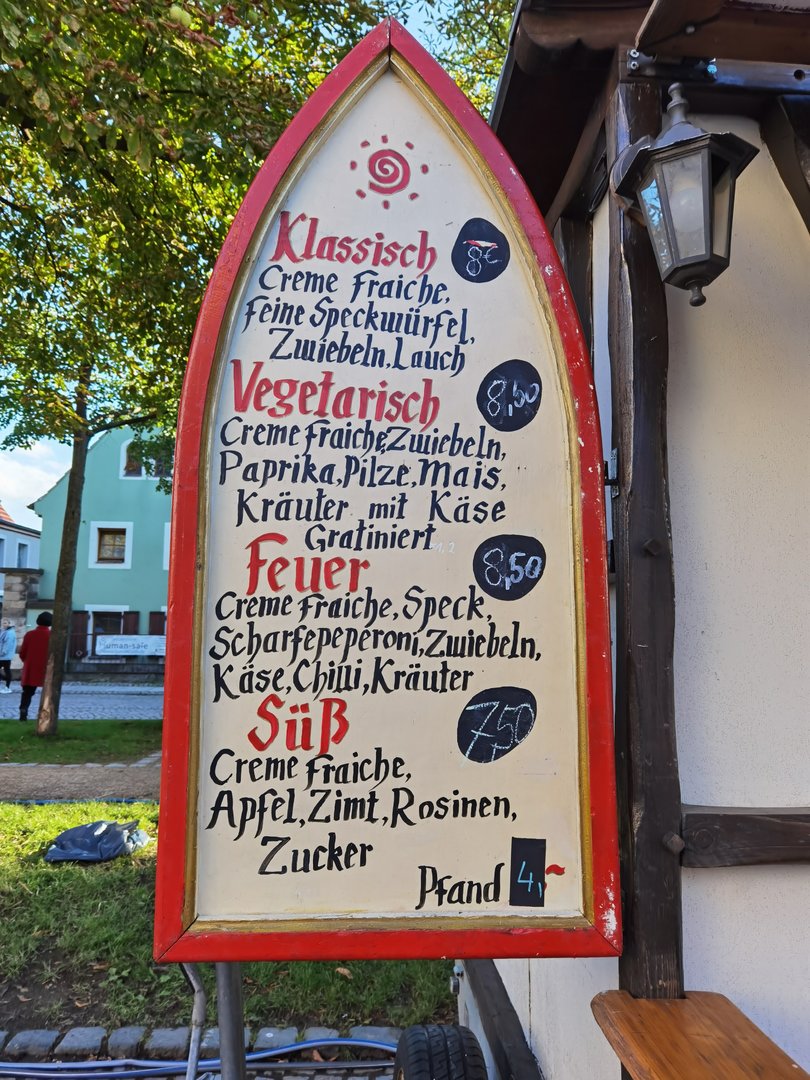 Klassisch 8€
Creme Fraiche,
Feine Speckwürfel,
Zwiebeln, Lauch
Vegetarisch 8,50
Creme Fraiche, Zwiebeln,
Paprika, Pilze, Mais,
Kräuter mit Käse
Gratiniert
Feuer 8,50
Creme Fraiche, Speck,
Scharfepeperoni, Zwiebeln,
Käse, Chilli, Kräuter
Süß 7,50
Creme Fraiche,
Apfel, Zimt, Rosinen,
Zucker
Pfand 4,-